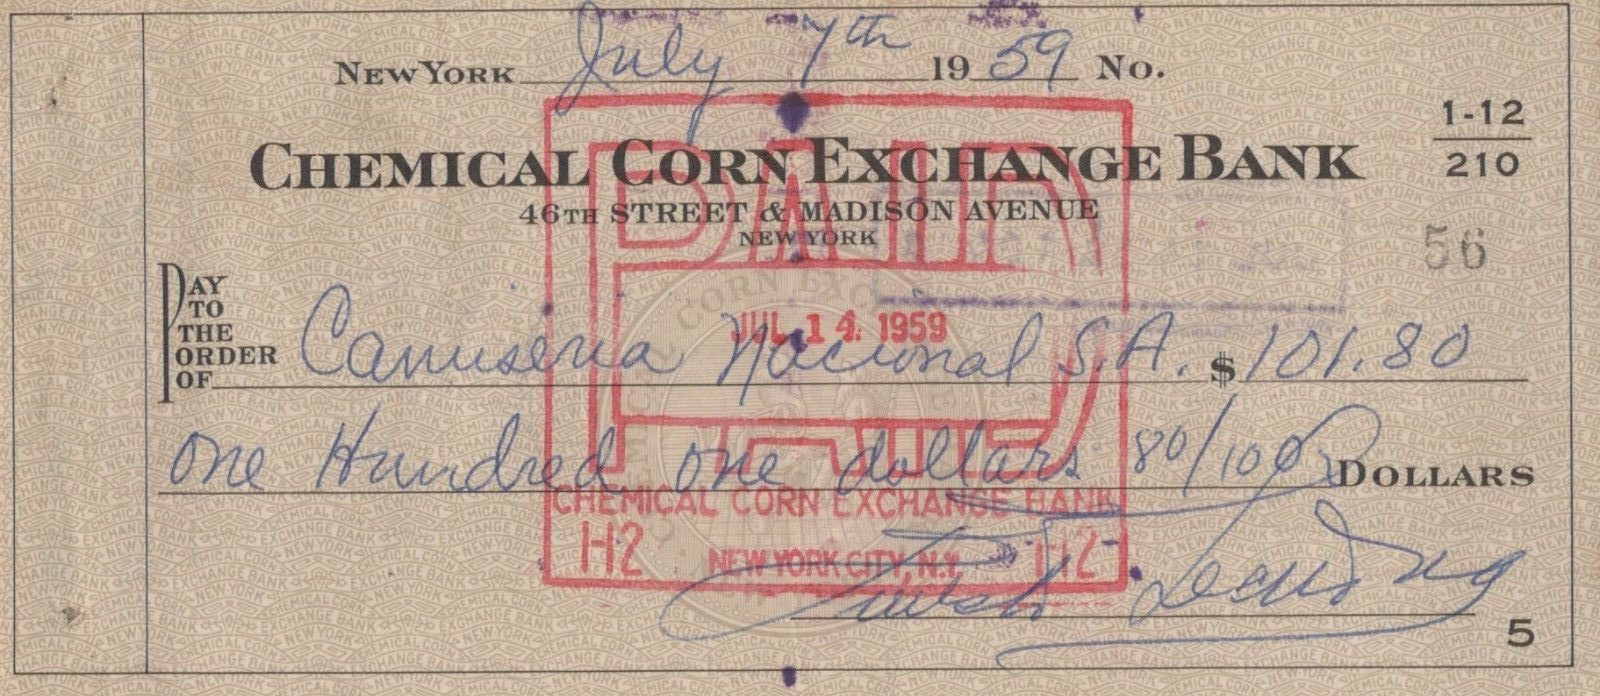 NEW YORK July 7th 1959 No.
1-12
210
CHEMICAL CORN EXCHANGE BANK
46TH STREET & MADISON AVENUE
NEW YORK
56
PAID
PAY TO THE ORDER OF Camiseria Nacional S.A. $ 101.80
JUL 14. 1959
One Hundred one dollars 80/100 DOLLARS
CHEMICAL CORN EXCHANGE BANK
1-12 NEW YORK CITY, N.Y. 1-12
5